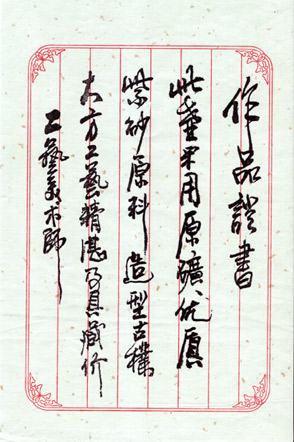 作品證書
此壺采用原礦优质
紫砂原料造型古樸
大方工藝精湛乃具藏价
工藝美术師